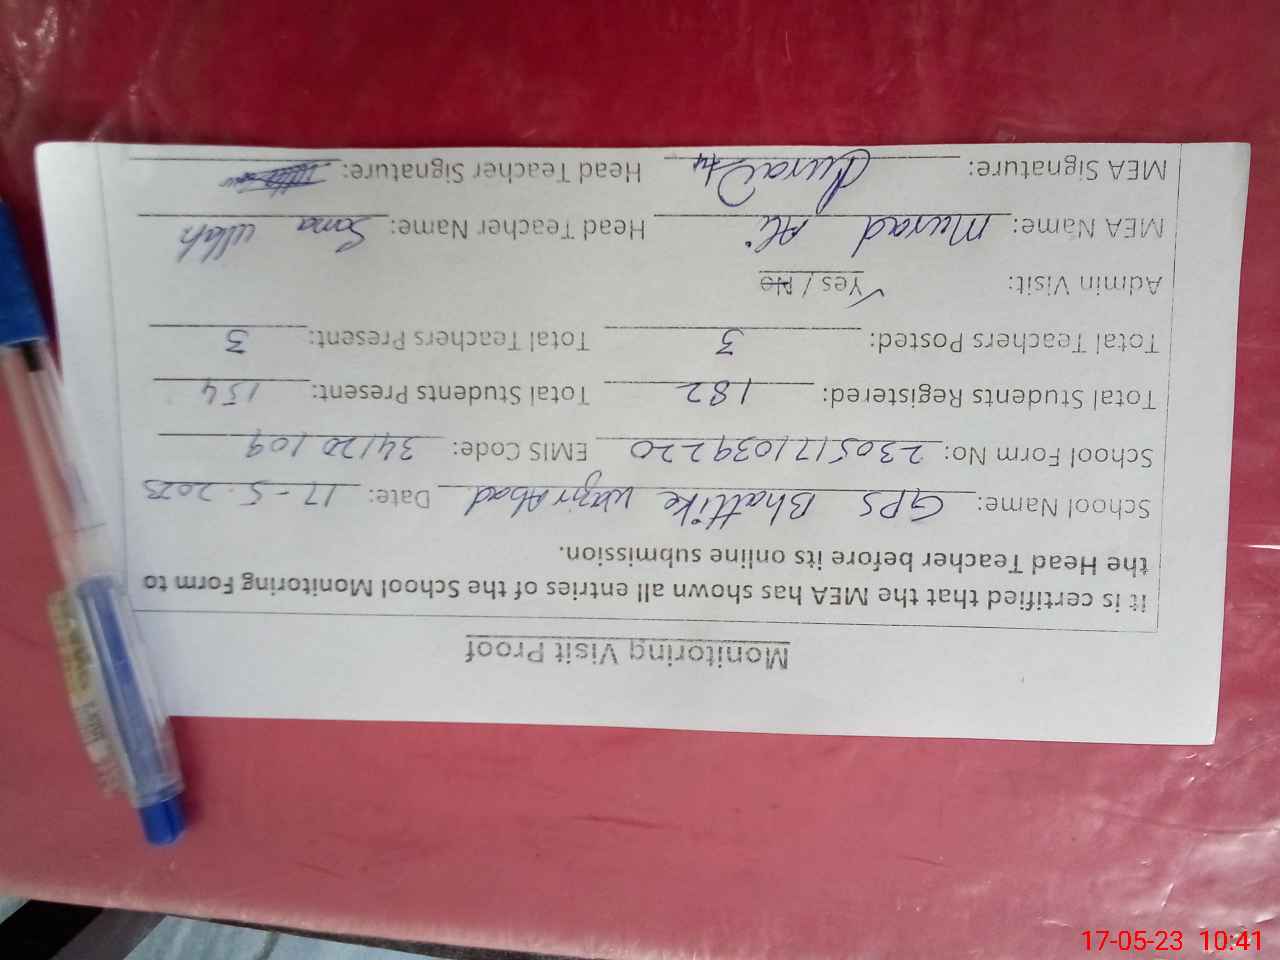 Monitoring Visit Proof
It is certified that the MEA has shown all entries of the School Monitoring Form to
the Head Teacher before its online submission.
School Name: GPS Bhattike wazirAbad Date: 17-5-2023
School Form No: 2305171039220 EMIS Code: 34120109
Total Students Registered: 182 Total Students Present: 154
Total Teachers Posted: 3 Total Teachers Present: 3
Admin Visit: Yes / No
MEA Name: Murad Ali Head Teacher Name: Sana Ullah
MEA Signature: Head Teacher Signature:
17-05-23 10:41